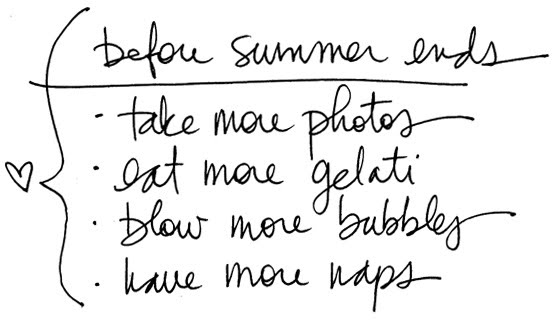 before summer ends
· take more photos
· eat more gelati
· blow more bubbles
· have more naps